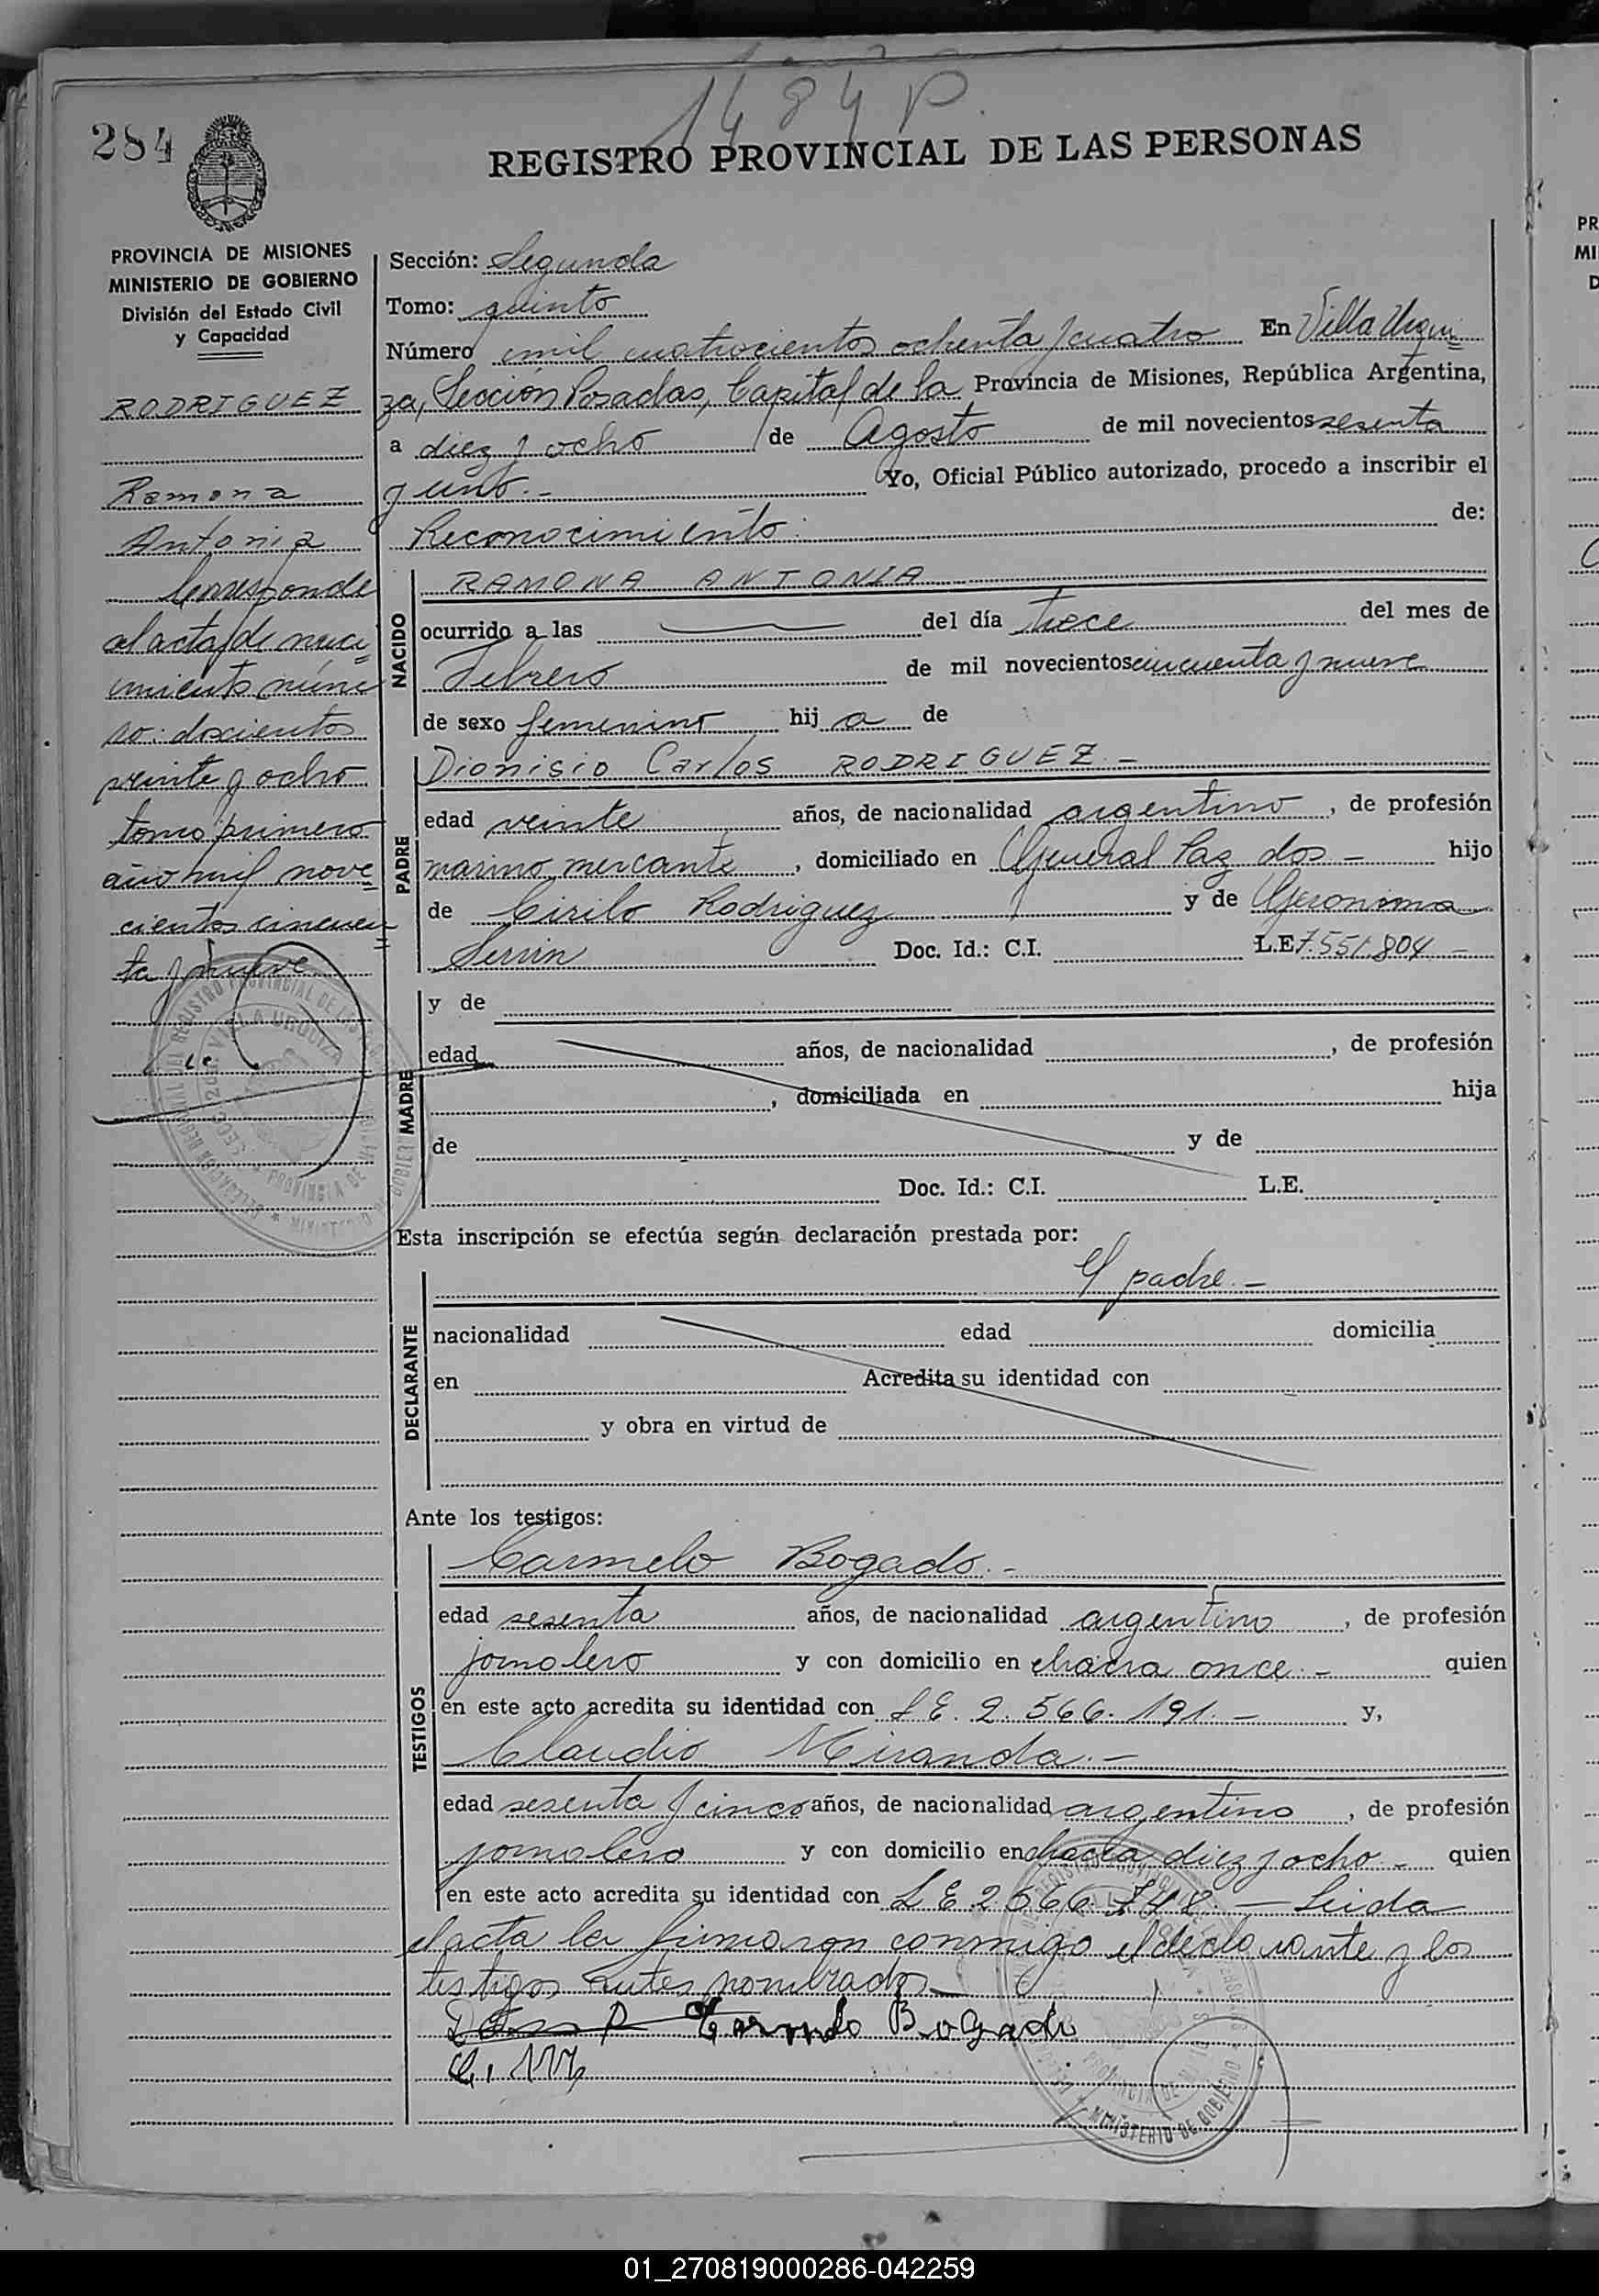 1484 P.
284
REGISTRO PROVINCIAL DE LAS PERSONAS
PROVINCIA DE MISIONES
MINISTERIO DE GOBIERNO
División del Estado Civil
y Capacidad
RODRIGUEZ
Ramona
Antonia
Corresponde
al acta de naci
miento núme
ro: doscientos
veinte y ocho
tomo primero
año mil nove
cientos cincuen
ta y nueve
Sección: Segunda
Tomo: quinto
Número mil cuatrocientos ochenta y cuatro En Villa Urqui
za, Sección Posadas, Capital de la Provincia de Misiones, República Argentina,
a diez y ocho de Agosto de mil novecientos sesenta
y uno.- Yo, Oficial Público autorizado, procedo a inscribir el
Reconocimiento. de:
NACIDO
RAMONA ANTONIA
ocurrido a las del día trece del mes de
Febrero de mil novecientos cincuenta y nueve
de sexo femenino hij a de
PADRE
Dionisio Carlos RODRIGUEZ.-
edad veinte años, de nacionalidad argentino, de profesión
marino mercante, domiciliado en General Paz dos - hijo
de Cirilo Rodriguez y de Geronima
Servin Doc. Id.: C.I. L.E. 7.551.804 -
MADRE
y de
edad años, de nacionalidad , de profesión
, domiciliada en hija
de y de
Doc. Id.: C.I. L.E.
Esta inscripción se efectúa según declaración prestada por:
DECLARANTE
el padre.-
nacionalidad edad domicilia
en Acredita su identidad con
y obra en virtud de
Ante los testigos:
TESTIGOS
Carmelo Bogado.-
edad sesenta años, de nacionalidad argentino, de profesión
jornalero y con domicilio en chacra once.- quien
en este acto acredita su identidad con L E. 2.566.191.- y,
Claudio Miranda.-
edad sesenta y cinco años, de nacionalidad argentino, de profesión
jornalero y con domicilio en chacra diez y ocho - quien
en este acto acredita su identidad con L E 2 566 748.- Leida
el acta la firmaron conmigo el declarante y los
testigos antes nombrados.-
Carmelo Bogado
MINISTERIO DE GOBIERNO
01_270819000286-042259